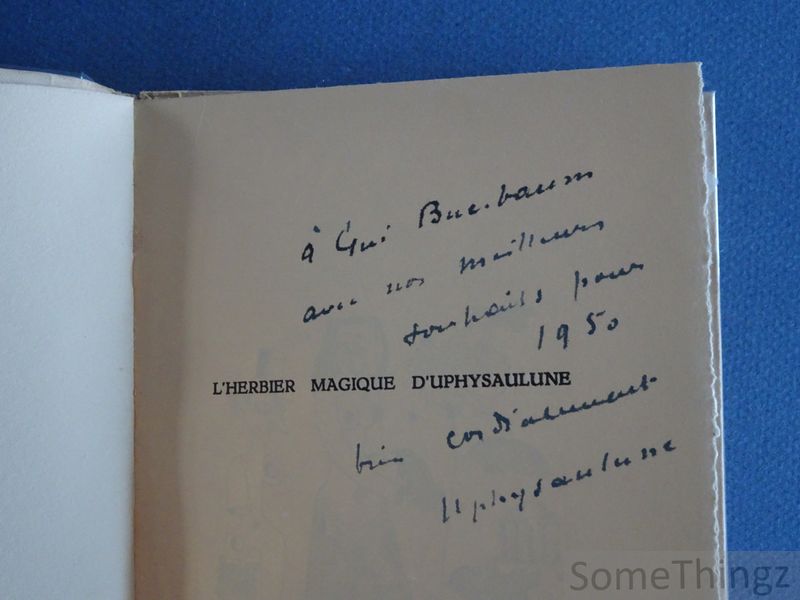 à Gui Buc.baum
avec nos meilleurs
souhaits pour
1950
L'HERBIER MAGIQUE D'UPHYSAULUNE
bien cordialement
Uphysaulune
SomeThingz